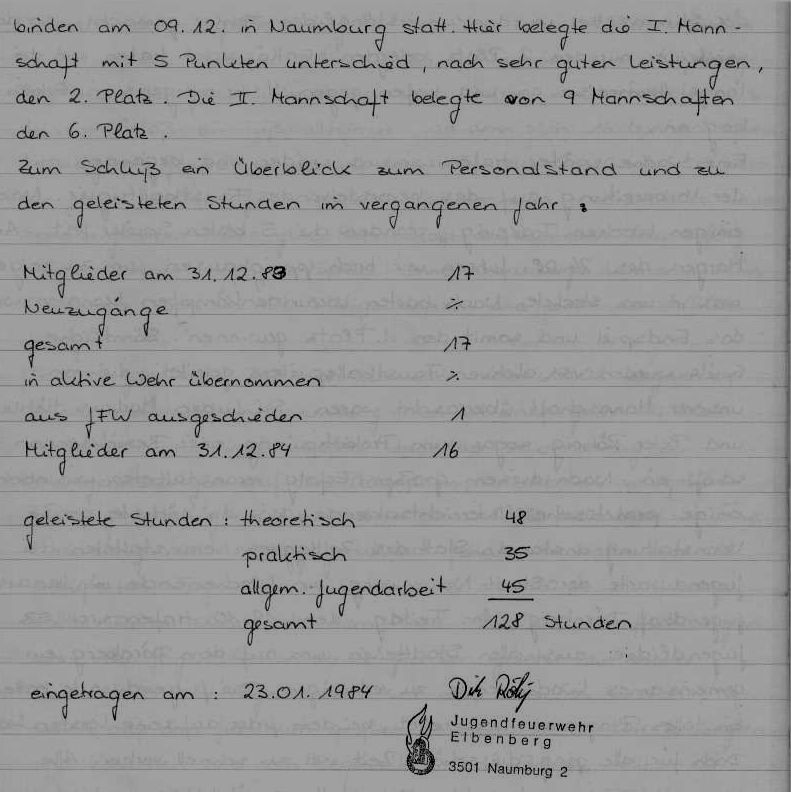 binden am 09.12. in Naumburg statt. Hier belegte die I. Mann-
schaft mit 5 Punkten unterschied, nach sehr guten Leistungen,
den 2. Platz. Die II. Mannschaft belegte von 9 Mannschaften
den 6. Platz.
Zum Schluß ein Überblick zum Personalstand und zu
den geleisteten Stunden im vergangenen Jahr:
Mitglieder am 31.12.83 17
Neuzugänge %
gesamt 17
in aktive Wehr übernommen %
aus JFW ausgeschieden 1
Mitglieder am 31.12.84 16
geleistete Stunden: theoretisch 48
praktisch 35
allgem. Jugendarbeit 45
gesamt 128 Stunden
eingetragen am: 23.01.1984
Jugendfeuerwehr
Elbenberg
3501 Naumburg 2